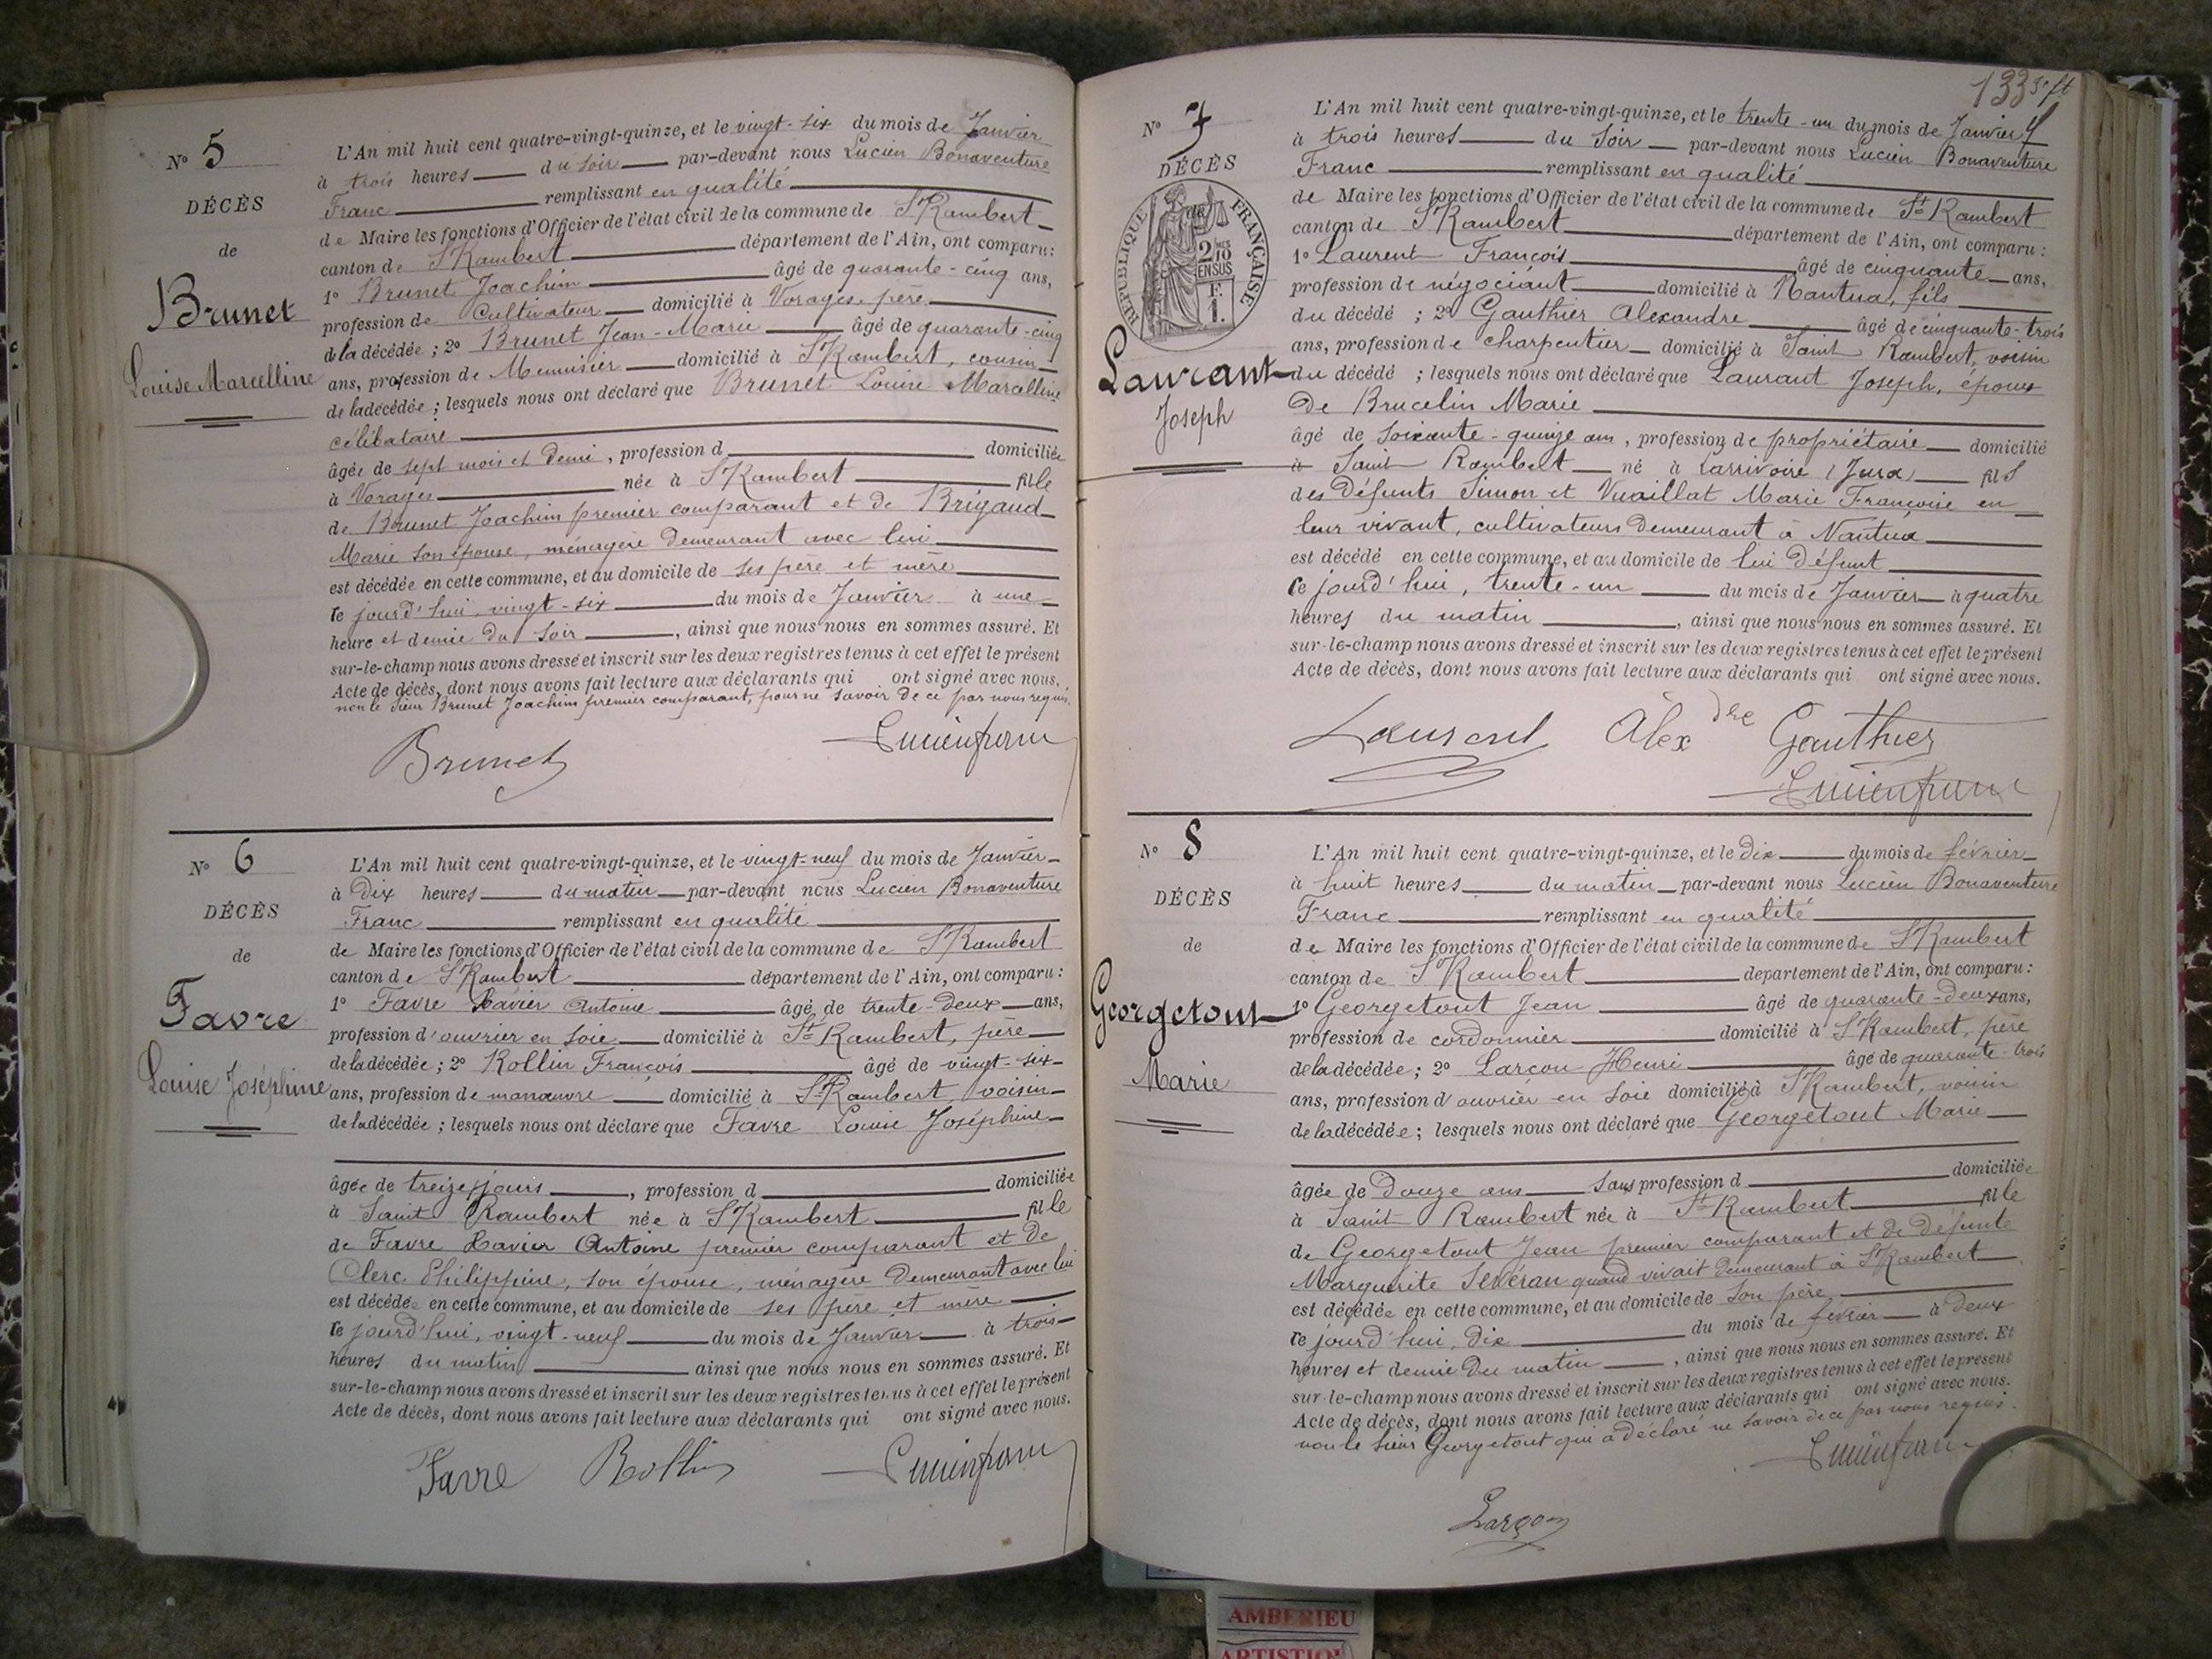 N° 5
DÉCÈS
de
Brunet
Louise Marcelline
L'An mil huit cent quatre-vingt-quinze, et le vingt-six du mois de Janvier
à trois heures du soir par-devant nous Lucien Bonaventure
Franc remplissant en qualité
de Maire les fonctions d'Officier de l'état civil de la commune de St Rambert
canton de St Rambert département de l'Ain, ont comparu:
1° Brunet Joachim âgé de quarante-cinq ans,
profession de Cultivateur domicilié à Vorages, père
de la décédée; 2° Brunet Jean-Marie âgé de quarante-cinq
ans, profession de Menuisier domicilié à St Rambert, cousin
de la décédée; lesquels nous ont déclaré que Brunet Louise Marcelline
célibataire
âgée de sept mois et demi, profession d domiciliée
à Vorages née à St Rambert fille
de Brunet Joachim premier comparant et de Brigaud
Marie son épouse, ménagère demeurant avec lui
est décédée en cette commune, et au domicile de ses père et mère
ce jourd'hui vingt-six du mois de Janvier à une
heure et demie du soir, ainsi que nous nous en sommes assuré. Et
sur-le-champ nous avons dressé et inscrit sur les deux registres tenus à cet effet le présent
Acte de décès, dont nous avons fait lecture aux déclarants qui ont signé avec nous,
non le sieur Brunet Joachim premier comparant, pour ne savoir de ce par nous requis.
Brunet Lucien franc
N° 6
DÉCÈS
de
Favre
Louise Joséphine
L'An mil huit cent quatre-vingt-quinze, et le vingt-neuf du mois de Janvier
à dix heures du matin par-devant nous Lucien Bonaventure
Franc remplissant en qualité
de Maire les fonctions d'Officier de l'état civil de la commune de St Rambert
canton de St Rambert département de l'Ain, ont comparu:
1° Favre Xavier Antoine âgé de trente-deux ans,
profession d'ouvrier en soie domicilié à St Rambert, père
de la décédée; 2° Rollin François âgé de vingt-six
ans, profession de manœuvre domicilié à St Rambert, voisin
de la décédée; lesquels nous ont déclaré que Favre Louise Joséphine
âgée de treize jours, profession d domiciliée
à Saint Rambert née à St Rambert fille
de Favre Xavier Antoine premier comparant et de
Clerc Philippine, son épouse, ménagère demeurant avec lui
est décédée en cette commune, et au domicile de ses père et mère
ce jourd'hui, vingt-neuf du mois de Janvier à trois
heures du matin ainsi que nous nous en sommes assuré. Et
sur-le-champ nous avons dressé et inscrit sur les deux registres tenus à cet effet le présent
Acte de décès, dont nous avons fait lecture aux déclarants qui ont signé avec nous.
Favre Rollin Lucien franc
133
N° 7
DÉCÈS
de
RÉPUBLIQUE FRANÇAISE
2/10
EN SUS
F.
1.
Laurant
Joseph
L'An mil huit cent quatre-vingt-quinze, et le trente-un du mois de Janvier
à trois heures du soir par-devant nous Lucien Bonaventure
Franc remplissant en qualité
de Maire les fonctions d'Officier de l'état civil de la commune de St Rambert
canton de St Rambert département de l'Ain, ont comparu:
1° Laurent François âgé de cinquante ans,
profession de négociant domicilié à Nantua, fils
du décédé; 2° Gauthier Alexandre âgé de cinquante-trois
ans, profession de charpentier domicilié à Saint Rambert, voisin
du décédé; lesquels nous ont déclaré que Laurant Joseph, époux
de Brucelin Marie
âgé de soixante-quinze ans, profession de propriétaire domicilié
à Saint Rambert né à Larrivoire (Jura) fils
des défunts Simon et Vuaillat Marie Françoise en
leur vivant, cultivateurs demeurant à Nantua
est décédé en cette commune, et au domicile de lui défunt
ce jourd'hui, trente-un du mois de Janvier à quatre
heures du matin, ainsi que nous nous en sommes assuré. Et
sur-le-champ nous avons dressé et inscrit sur les deux registres tenus à cet effet le présent
Acte de décès, dont nous avons fait lecture aux déclarants qui ont signé avec nous.
Laurent Alexdre Gauthier
Lucien franc
N° 8
DÉCÈS
de
Georgetout
Marie
L'An mil huit cent quatre-vingt-quinze, et le dix du mois de février
à huit heures du matin par-devant nous Lucien Bonaventure
Franc remplissant en qualité
de Maire les fonctions d'Officier de l'état civil de la commune de St Rambert
canton de St Rambert département de l'Ain, ont comparu:
1° Georgetout Jean âgé de quarante-deux ans,
profession de cordonnier domicilié à St Rambert, père
de la décédée; 2° Larçon Henri âgé de quarante-trois
ans, profession d'ouvrier en soie domicilié à St Rambert, voisin
de la décédée; lesquels nous ont déclaré que Georgetout Marie
âgée de douze ans sans profession d domiciliée
à Saint Rambert née à St Rambert fille
de Georgetout Jean premier comparant et de défunte
Marguerite Sevéran quand vivait demeurant à St Rambert
est décédée en cette commune, et au domicile de son père
ce jourd'hui, dix du mois de février à deux
heures et demie du matin, ainsi que nous nous en sommes assuré. Et
sur-le-champ nous avons dressé et inscrit sur les deux registres tenus à cet effet le présent
Acte de décès, dont nous avons fait lecture aux déclarants qui ont signé avec nous.
non le sieur Georgetout qui a déclaré ne savoir de ce par nous requis.
Lucien franc
Larçon
AMBERIEU
ARTISTIQUE